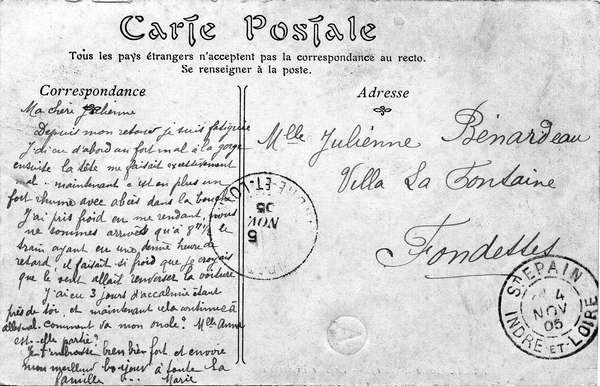 Carte Postale
Tous les pays étrangers n'acceptent pas la correspondance au recto.
Se renseigner à la poste.
Correspondance
Ma chère Julienne
Depuis mon retour je suis fatiguée
J'ai eu d'abord au fort mal à la gorge
ensuite la tête me faisait excessivement
mal. maintenant c'est en plus un
fort rhume avec abcès dans la bouche
J'ai pris froid en me rendant, nous
ne sommes arrivés qu'à 8h ½ le
train ayant eu une demie heure de
retard, il faisait si froid que je croyais
que le vent allait renverser la voiture
J'ai eu 3 jours d'accalmie étant
près de toi, et maintenant cela continue à
aller mal. Comment va mon oncle? Mlle Anna
est-elle partie?
Je t'embrasse bien bien fort et envoie
mon meilleur bonjour à toute la
famille Marie
Adresse
Mlle Juliènne Bénardeau
Villa La Fontaine
Fondettes
INDRE-ET-LOIRE
5
NOV.
05
STEPAIN
4
NOV
05
INDRE-ET-LOIRE